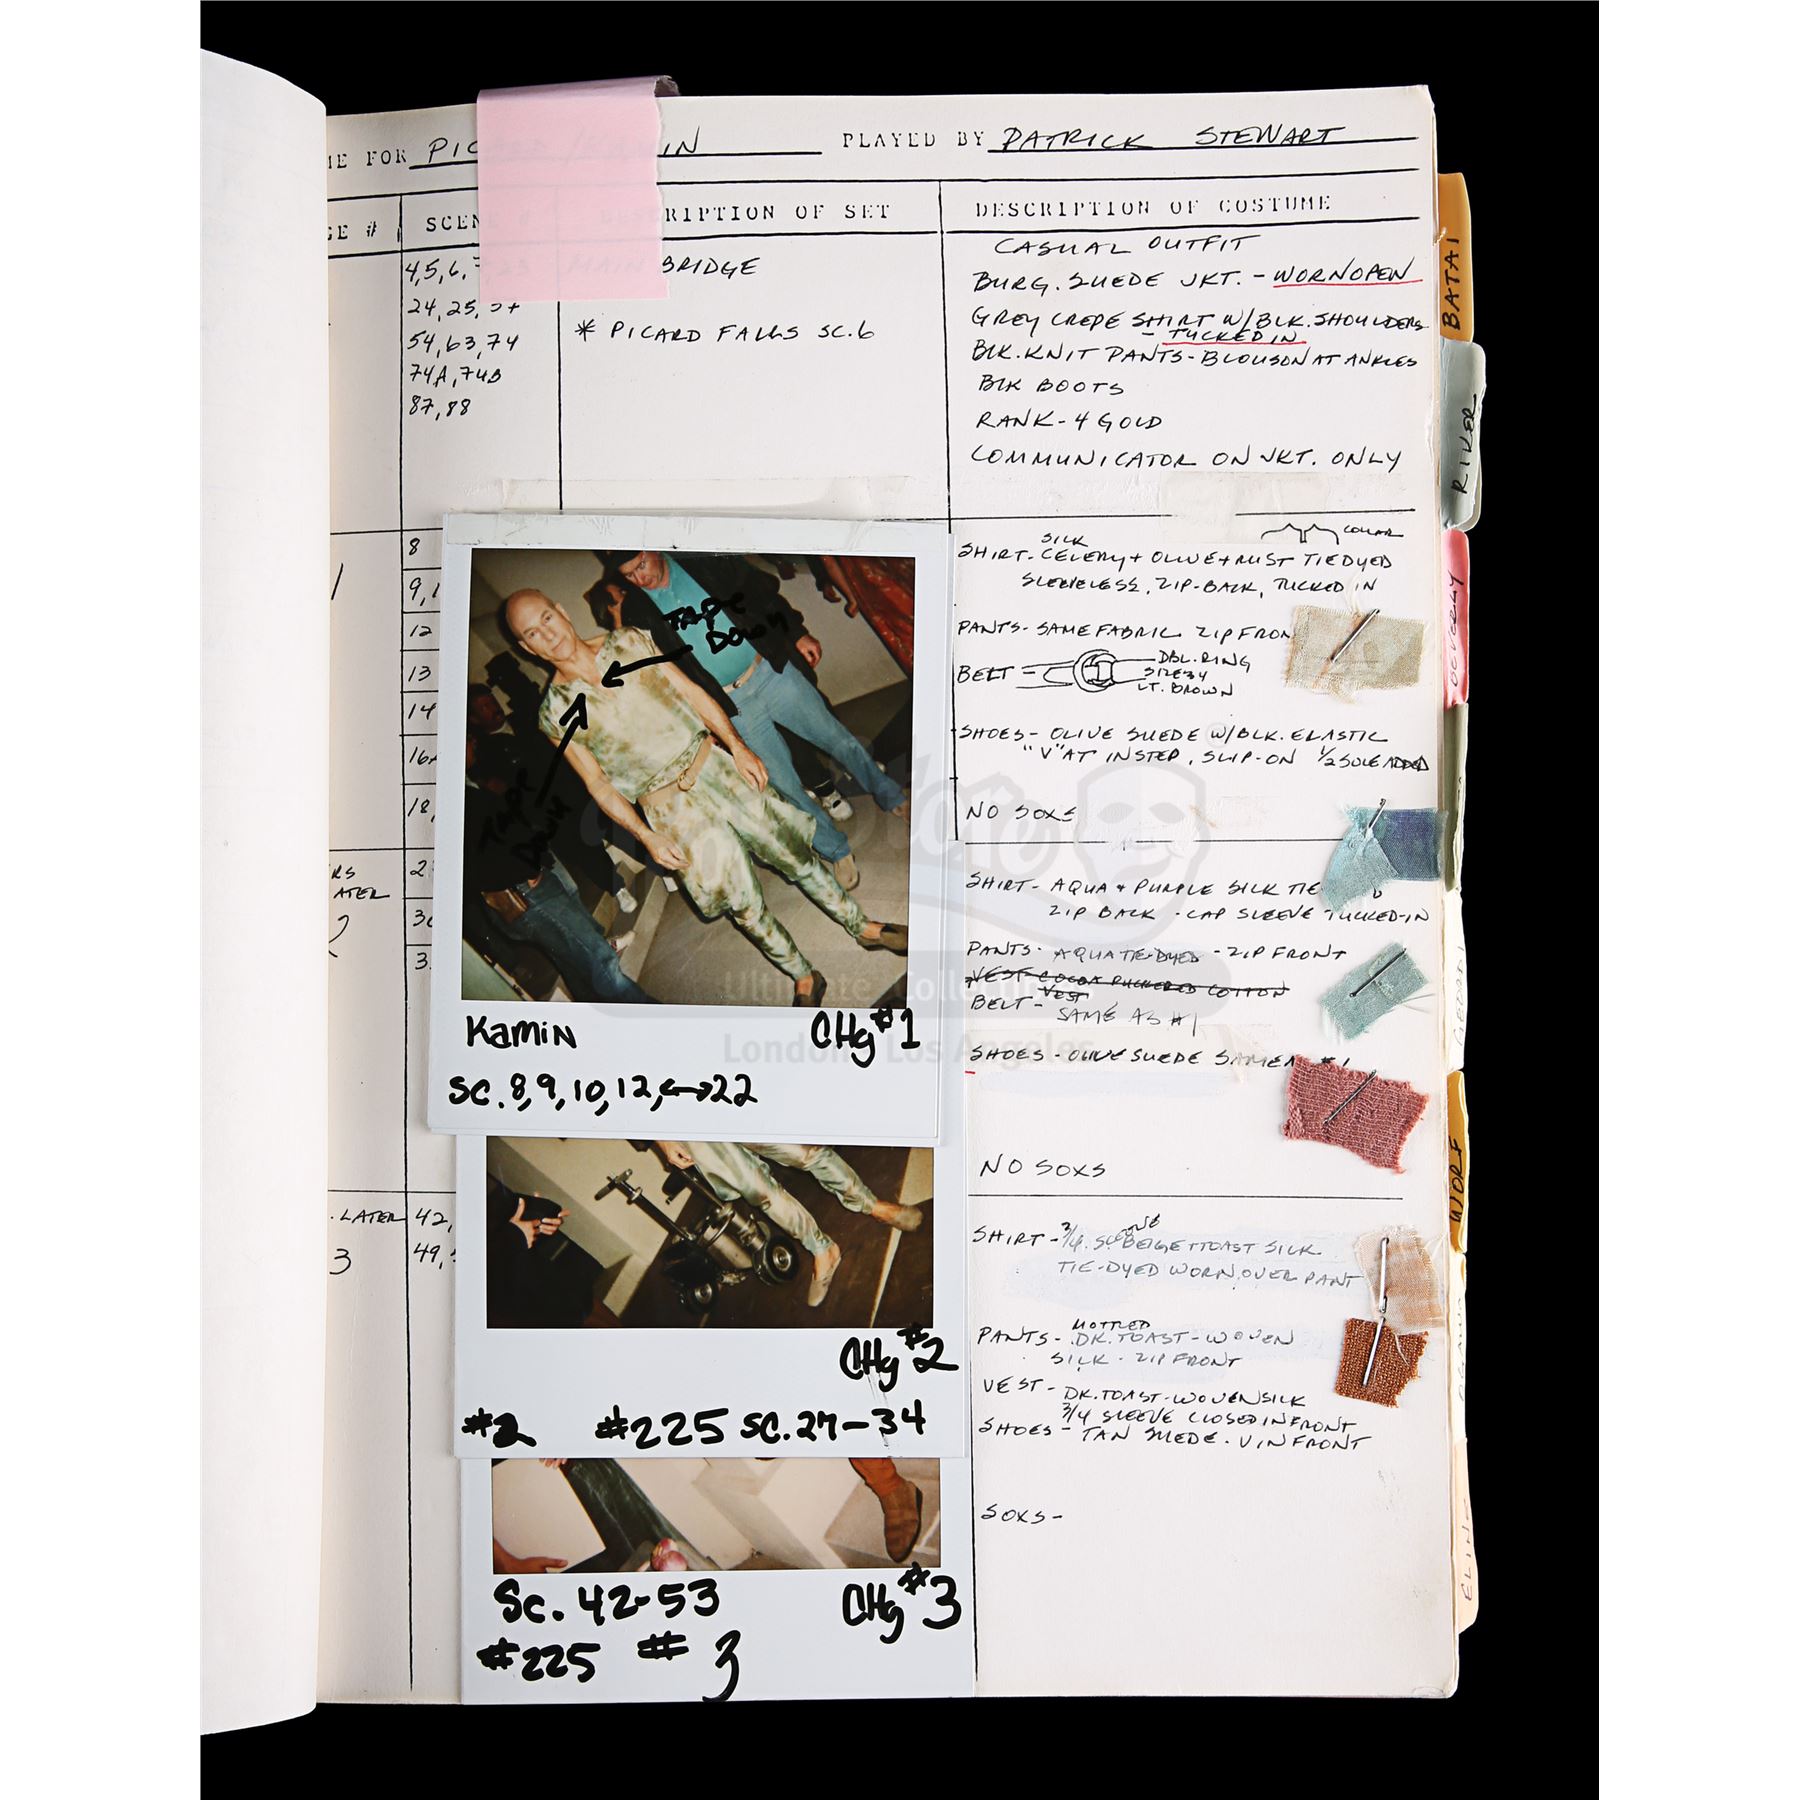 ME FOR PICARD / KAMIN PLAYED BY PATRICK STEWART
GE # SCENE # DESCRIPTION OF SET DESCRIPTION OF COSTUME
4, 5, 6, 23
24, 25,
54, 63, 74
74A, 74B
87, 88
MAIN BRIDGE
* PICARD FALLS SC. 6
CASUAL OUTFIT
BURG. SUEDE JKT. - WORN OPEN
GREY CREPE SHIRT W/BLK. SHOULDERS
- TUCKED IN
BLK. KNIT PANTS - BLOUSON AT ANKLES
BLK BOOTS
RANK - 4 GOLD
COMMUNICATOR ON JKT. ONLY
1
8
9, 1
12
13
14
16A
18,
COLLAR
SILK
SHIRT - CELERY + OLIVE + RUST TIE DYED
SLEEVELESS, ZIP-BACK, TUCKED IN
PANTS - SAME FABRIC ZIP FRON
BELT
DBL. RING
SIZE 34
LT. BROWN
SHOES - OLIVE SUEDE W/BLK. ELASTIC
"V" AT INSTEP, SLIP-ON 1/2 SOLE ADDED
NO SOXS
TAPE
DOWN
TAPE
DOWN
KAMIN CHg #1
SC. 8, 9, 10, 12, ↔ 22
RS
ATER
2
2
30
3
SHIRT - AQUA + PURPLE SILK TIE D
ZIP BACK - CAP SLEEVE TUCKED-IN
PANTS - AQUA TIE-DYED - ZIP FRONT
VEST - COCOA PUCKERED COTTON
VEST
BELT - SAME AS #1
SHOES - OLIVE SUEDE SAME A #1
NO SOXS
CHg #2
#2 #225 SC. 27-34
. LATER
3
42,
49,
SHIRT - 3/4 BEIGE + TOAST SILK
TIE-DYED WORN OVER PANT
MOTTLED
PANTS - DK. TOAST - WOVEN
SILK - ZIP FRONT
VEST - DK. TOAST - WOVEN SILK
3/4 SLEEVE CLOSED IN FRONT
SHOES - TAN SUEDE - V IN FRONT
SOXS -
SC. 42-53 CHg #3
#225 # 3
BATAI
RIKER
BEVERLY
WORF
ELINE
Prop Store
Ultimate Collectables
London Los Angeles